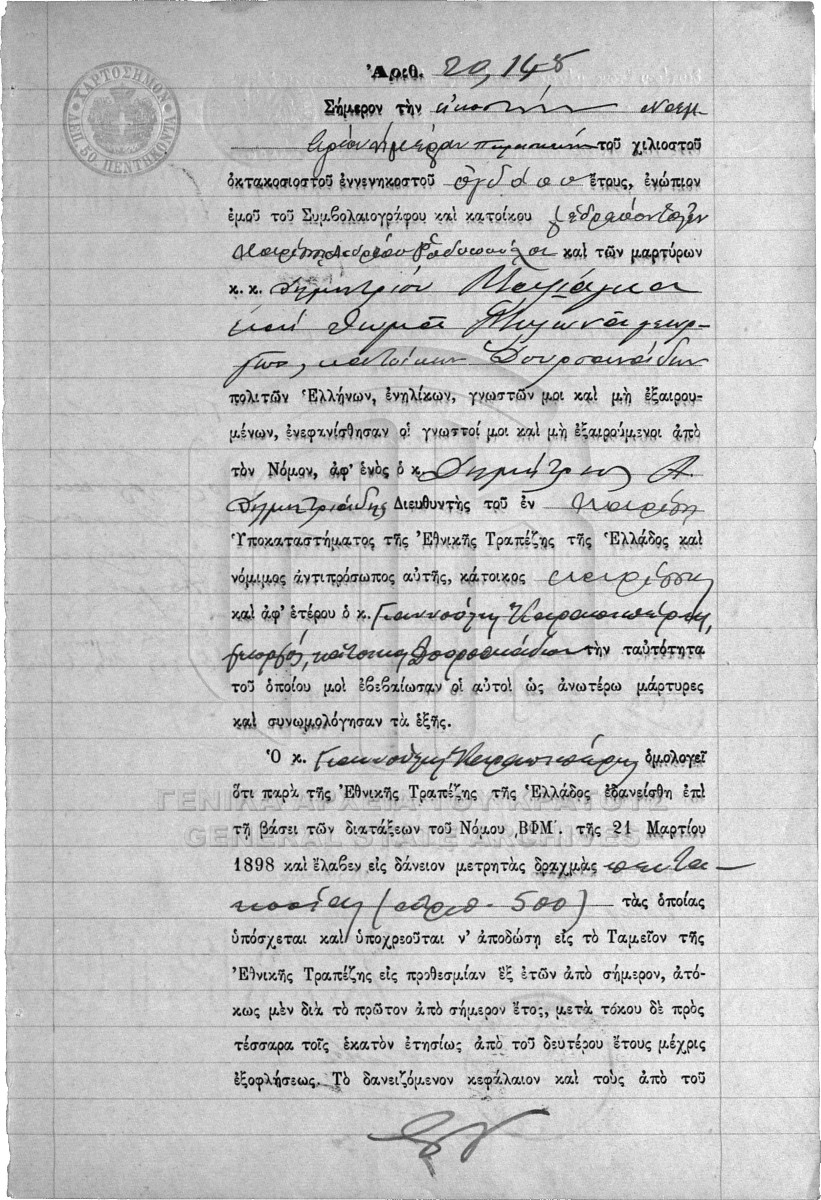 ΧΑΡΤΟΣΗΜΟΝ
ΛΕΠ. 50 ΠΕΝΤΗΚΟΝΤΑ
Ἀριθ. 20,148
Σήμερον τὴν εἰκοστὴν Νοεμ
βρίου ἡμέραν παρασκευὴν τοῦ χιλιοστοῦ
ὀκτακοσιοστοῦ ἐννενηκοστοῦ ὀγδόου ἔτους, ἐνώπιον
ἐμοῦ τοῦ Συμβολαιογράφου καὶ κατοίκου
καὶ τῶν μαρτύρων
κ. κ. Δημητρίου
καὶ Θωμᾶ Μυλωνᾶ γεωρ-
γῶν, κατοίκων
πολιτῶν Ἑλλήνων, ἐνηλίκων, γνωστῶν μοι καὶ μὴ ἐξαιρου-
μένων, ἐνεφανίσθησαν οἱ γνωστοί μοι καὶ μὴ ἐξαιρούμενοι ἀπὸ
τὸν Νόμον, ἀφ' ἑνὸς ὁ κ. Δημήτριος Α.
Δημητριάδης Διευθυντὴς τοῦ ἐν Λαρίσῃ
Ὑποκαταστήματος τῆς Ἐθνικῆς Τραπέζης τῆς Ἑλλάδος καὶ
νόμιμος ἀντιπρόσωπος αὐτῆς, κάτοικος Λαρίσης
καὶ ἀφ' ἑτέρου ὁ κ. Γιαννούλης
γεωργός, κάτοικος τὴν ταὐτότητα
τοῦ ὁποίου μοὶ ἐβεβαίωσαν οἱ αὐτοὶ ὡς ἀνωτέρω μάρτυρες
καὶ συνωμολόγησαν τὰ ἑξῆς.
Ὁ κ. Γιαννούλης ὁμολογεῖ
ὅτι παρὰ τῆς Ἐθνικῆς Τραπέζης τῆς Ἑλλάδος ἐδανείσθη ἐπὶ
ΓΕΝΙΚΑ ΑΡΧΕΙΑ ΤΟΥ ΚΡΑΤΟΥΣ
τῇ βάσει τῶν διατάξεων τοῦ Νόμου ͵ΒΦΜ΄. τῆς 21 Μαρτίου
GENERAL STATE ARCHIVES
1898 καὶ ἔλαβεν εἰς δάνειον μετρητὰς δραχμὰς πεντα-
κοσίας (ἀριθ. 500) τὰς ὁποίας
ὑπόσχεται καὶ ὑποχρεοῦται ν' ἀποδώσῃ εἰς τὸ Ταμεῖον τῆς
Ἐθνικῆς Τραπέζης εἰς προθεσμίαν ἓξ ἐτῶν ἀπὸ σήμερον, ἀτό-
κως μὲν διὰ τὸ πρῶτον ἀπὸ σήμερον ἔτος, μετὰ τόκου δὲ πρὸς
τέσσαρα τοῖς ἑκατὸν ἐτησίως ἀπὸ τοῦ δευτέρου ἔτους μέχρις
ἐξοφλήσεως. Τὸ δανειζόμενον κεφάλαιον καὶ τοὺς ἀπὸ τοῦ